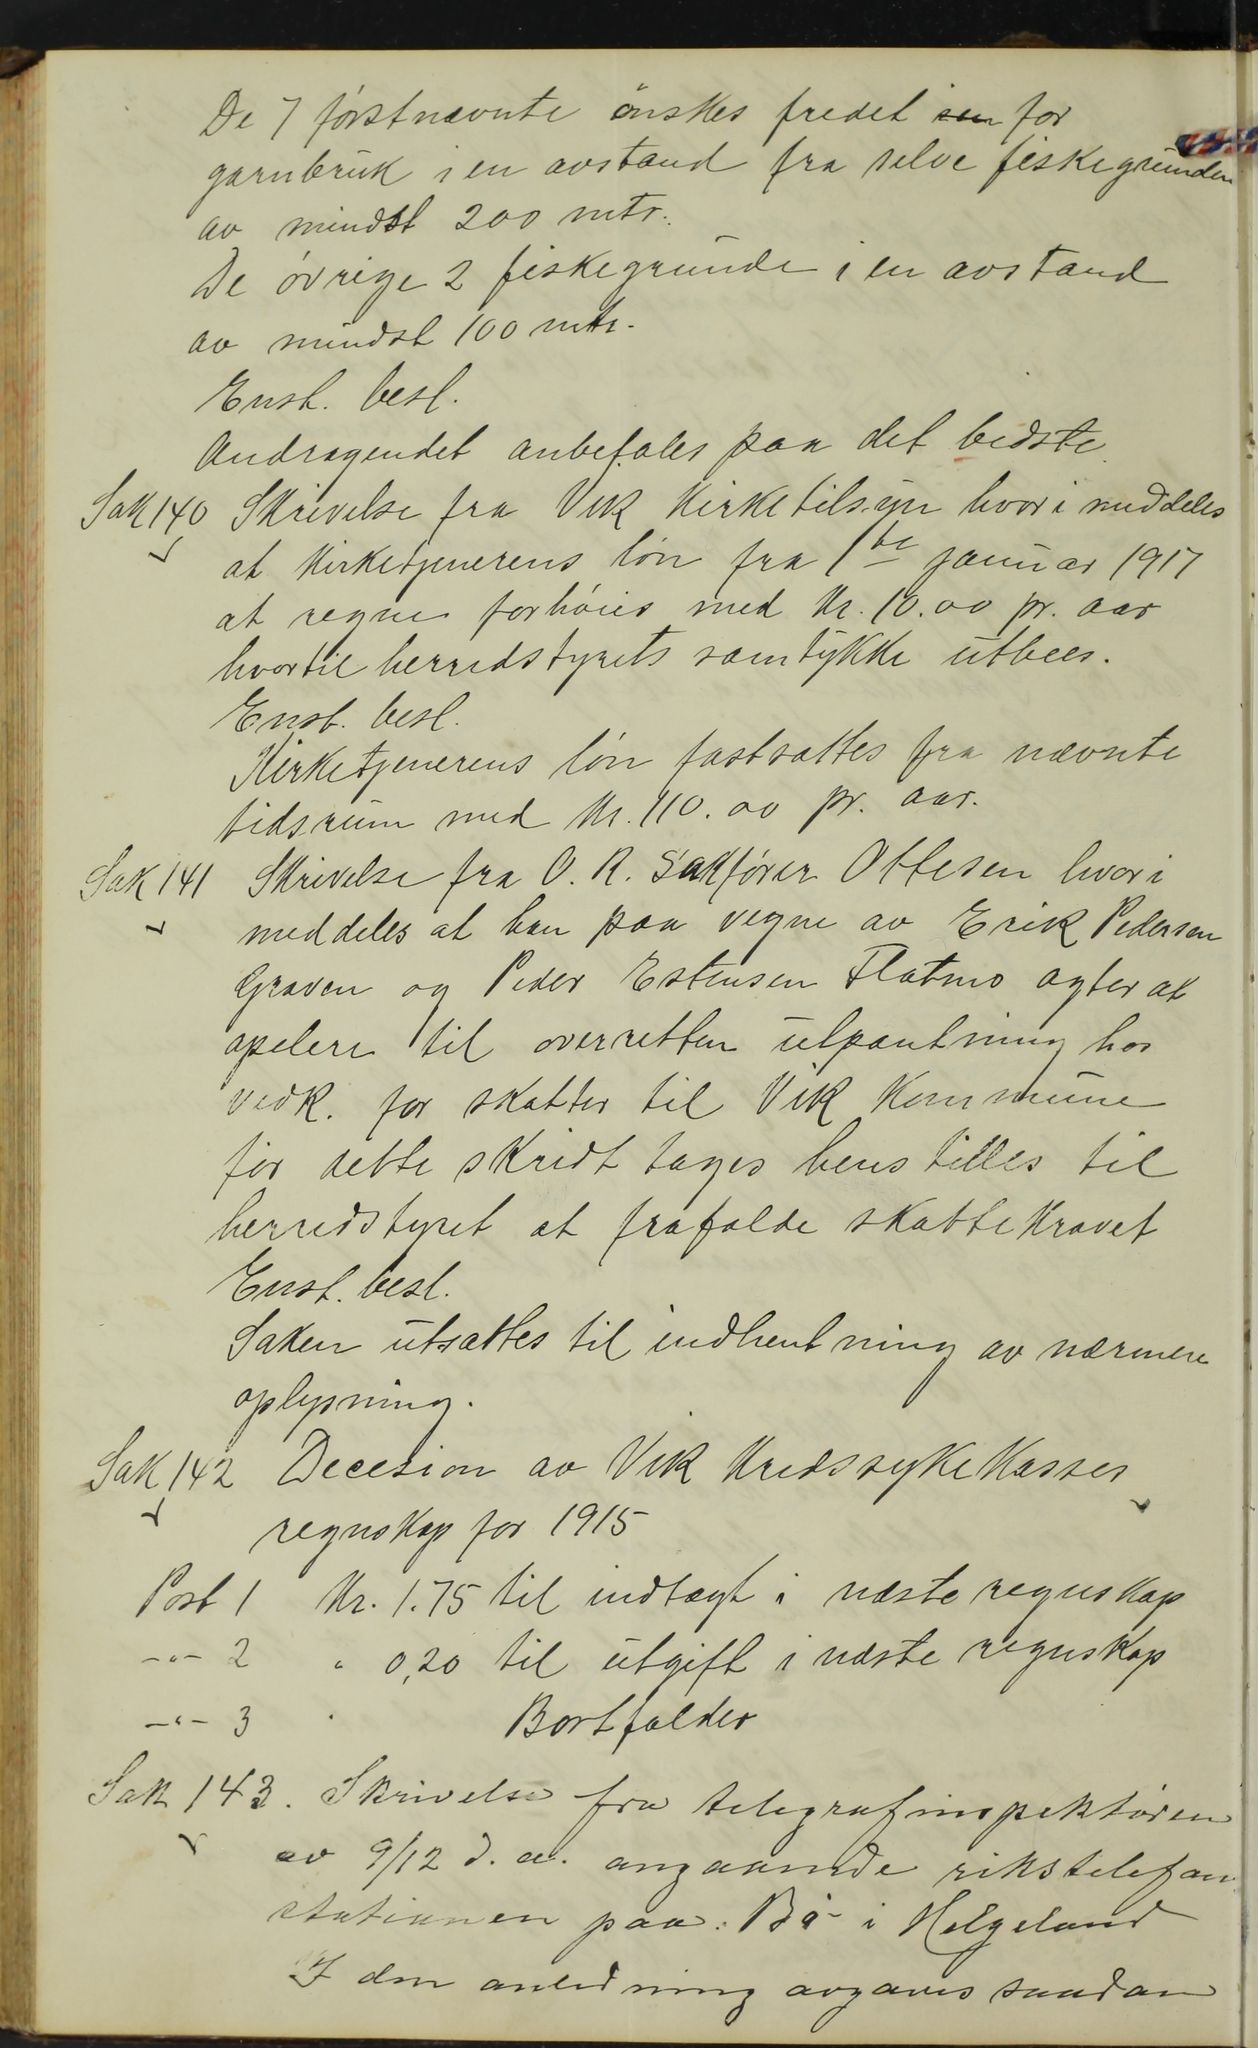 De 7 førstnævnte ønskes fredet i en for
garnbruk i en avstand fra selve fiskegrunden
av mindst 200 mtr.
De øvrige 2 fiskegrunde i en avstand
av mindst 100 mtr.
Enst. besl.
Andragendet anbefales paa det bedste.
Sak 140 Skrivelse fra Vik Kirketilsyn hvori meddeles
at Kirketjenerens løn fra 1ste januar 1917
at regne forhøies med Kr. 10.00 pr. aar
hvortil herredstyrets samtykke utbees.
Enst. besl.
Kirketjenerens løn fastsættes fra nævnte
tidsrum med Kr. 110.00 pr. aar.
Sak 141 Skrivelse fra O. R. Sakfører Ottesen hvori
meddeles at han paa vegne av Erik Pedersen
Graven og Peder Estensen Flatmo agter at
apelere til overretten utpantning hos
vedk. for skatter til Vik Kommune
før dette skridt tages henstilles til
herredstyret at frafalde skattekravet
Enst. besl.
Saken utsættes til indhentning av nærmere
oplysning.
Sak 142 Decesion av Vik Kredssykekasses
regnskap for 1915
Post 1 Kr. 1.75 til indtægt i næste regnskap
-"- 2 " 0,20 til utgift i næste regnskap
-"- 3 Bortfalder
Sak 143. Skrivelse fra telegrafinspektøren
av 9/12 d. a. angaaende rikstelefon
stationen paa: Bø i Helgeland
I den anledning avgaves saadan